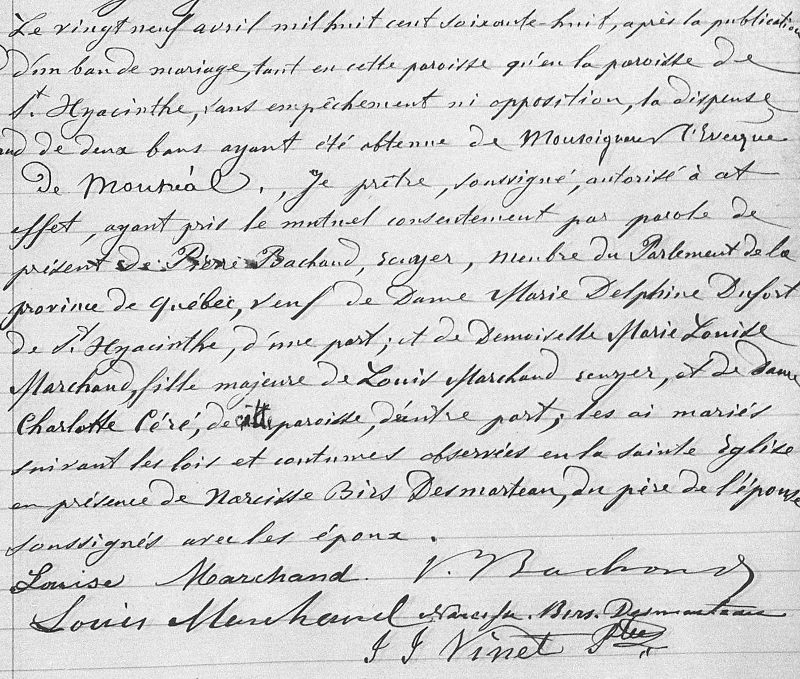 Le vingt neuf avril mil huit cent soixante-huit, après la publication
d'un ban de mariage, tant en cette paroisse qu'en la paroisse de
St. Hyacinthe, sans empêchement ni opposition, la dispense
de deux bans ayant été obtenue de Monseigneur l'Evêque
de Montréal, Je prêtre, soussigné, autorisé à cet
effet, ayant pris le mutuel consentement par parole de
présent de Pierre Bachand, écuyer, membre du Parlement de la
province de Québec, veuf de Dame Marie Delphine Dufort
de St. Hyacinthe, d'une part; et de Demoiselle Marie Louise
Marchand, fille majeure de Louis Marchand écuyer, et de dame
Charlotte Céré, de cette paroisse, d'autre part; les ai mariés
suivant les lois et coutumes observées en la sainte Eglise
en présence de Narcisse Birs Desmarteau, du père de l'épouse
soussignés avec les époux.
Louise Marchand. P. Bachand
Louis Marchand Narcisse. Birs. Desmarteau
J J Vinet Ptre